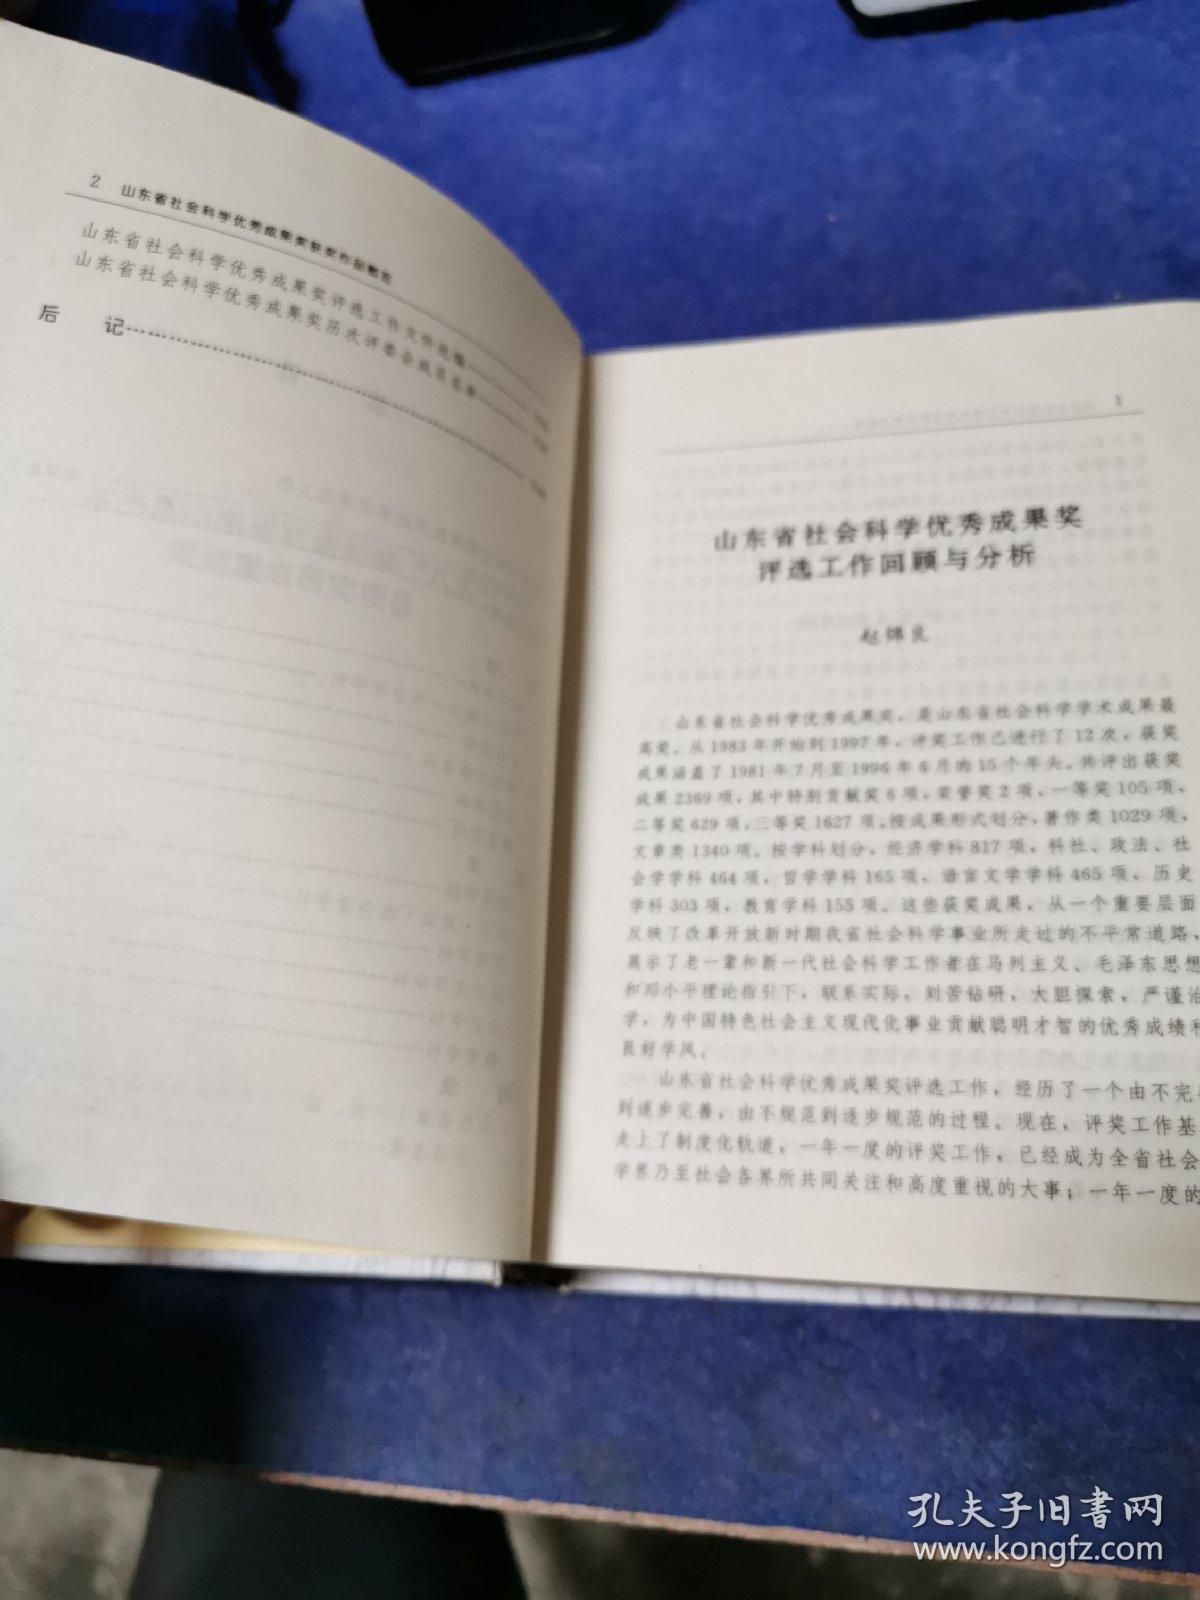 2 山东省社会科学优秀成果奖获奖作品概览
山东省社会科学优秀成果奖评选工作文件选编
山东省社会科学优秀成果奖历次评委会成员名单
后 记
1
山东省社会科学优秀成果奖
评选工作回顾与分析
赵锦良
山东省社会科学优秀成果奖，是山东省社会科学学术成果最
高奖。从1983年开始到1997年，评奖工作已进行了12次，获奖
成果涵盖了1981年7月至1996年6月的15个年头。共评出获奖
成果2369项，其中特别贡献奖6项，荣誉奖2项，一等奖105项，
二等奖629项，三等奖1627项。按成果形式划分，著作类1029项，
文章类1340项。按学科划分，经济学科817项，科社、政法、社
会学学科464项，哲学学科165项，语言文学学科465项，历史
学科303项，教育学科155项。这些获奖成果，从一个重要层面
反映了改革开放新时期我省社会科学事业所走过的不平常道路，
展示了老一辈和新一代社会科学工作者在马列主义、毛泽东思想
和邓小平理论指引下，联系实际，刻苦钻研，大胆探索，严谨治
学，为中国特色社会主义现代化事业贡献聪明才智的优秀成绩和
良好学风。
山东省社会科学优秀成果奖评选工作，经历了一个由不完善
到逐步完善，由不规范到逐步规范的过程。现在，评奖工作基
走上了制度化轨道，一年一度的评奖工作，已经成为全省社会
学界乃至社会各界所共同关注和高度重视的大事；一年一度的
孔夫子旧書网
www.kongfz.com